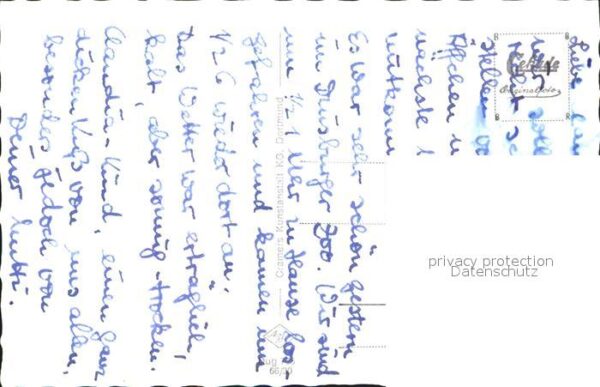 Liebe
Äffchen
nächste
mitkom
Es war sehr schön gestern
im Duisburger Zoo. Wir sind
um ½ 1 Uhr zu Hause los-
gefahren und kamen um
½ 6 wieder dort an.
Das Wetter war erträglich,
kalt, aber sonnig-trocken.
Claudia-Kind, einen ganz
dicken Kuß von uns allen,
besonders jedoch von
Deiner
Cekade
Originalfoto
Cramers Kunstanstalt KG, Dortmund
66/30
privacy protection
Datenschutz